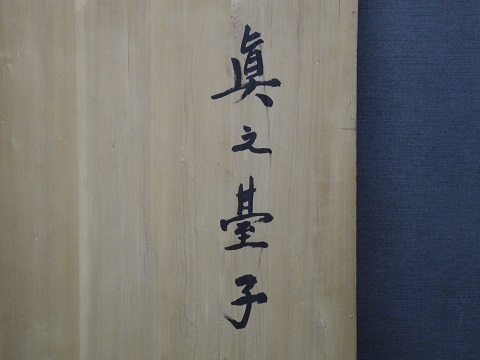 眞之臺子